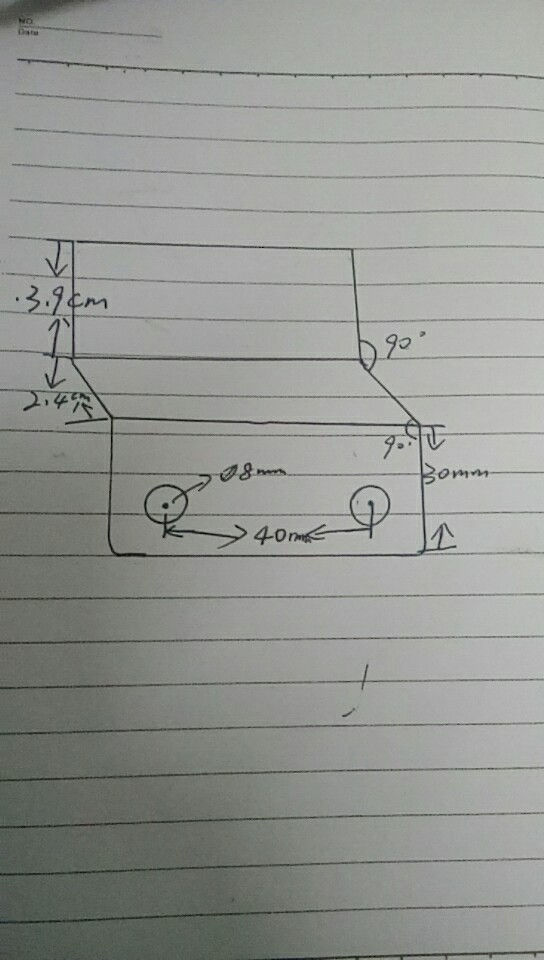 NO.
Date
3.9cm
90°
2.4cm
90°
30mm
Ø8mm
40mm